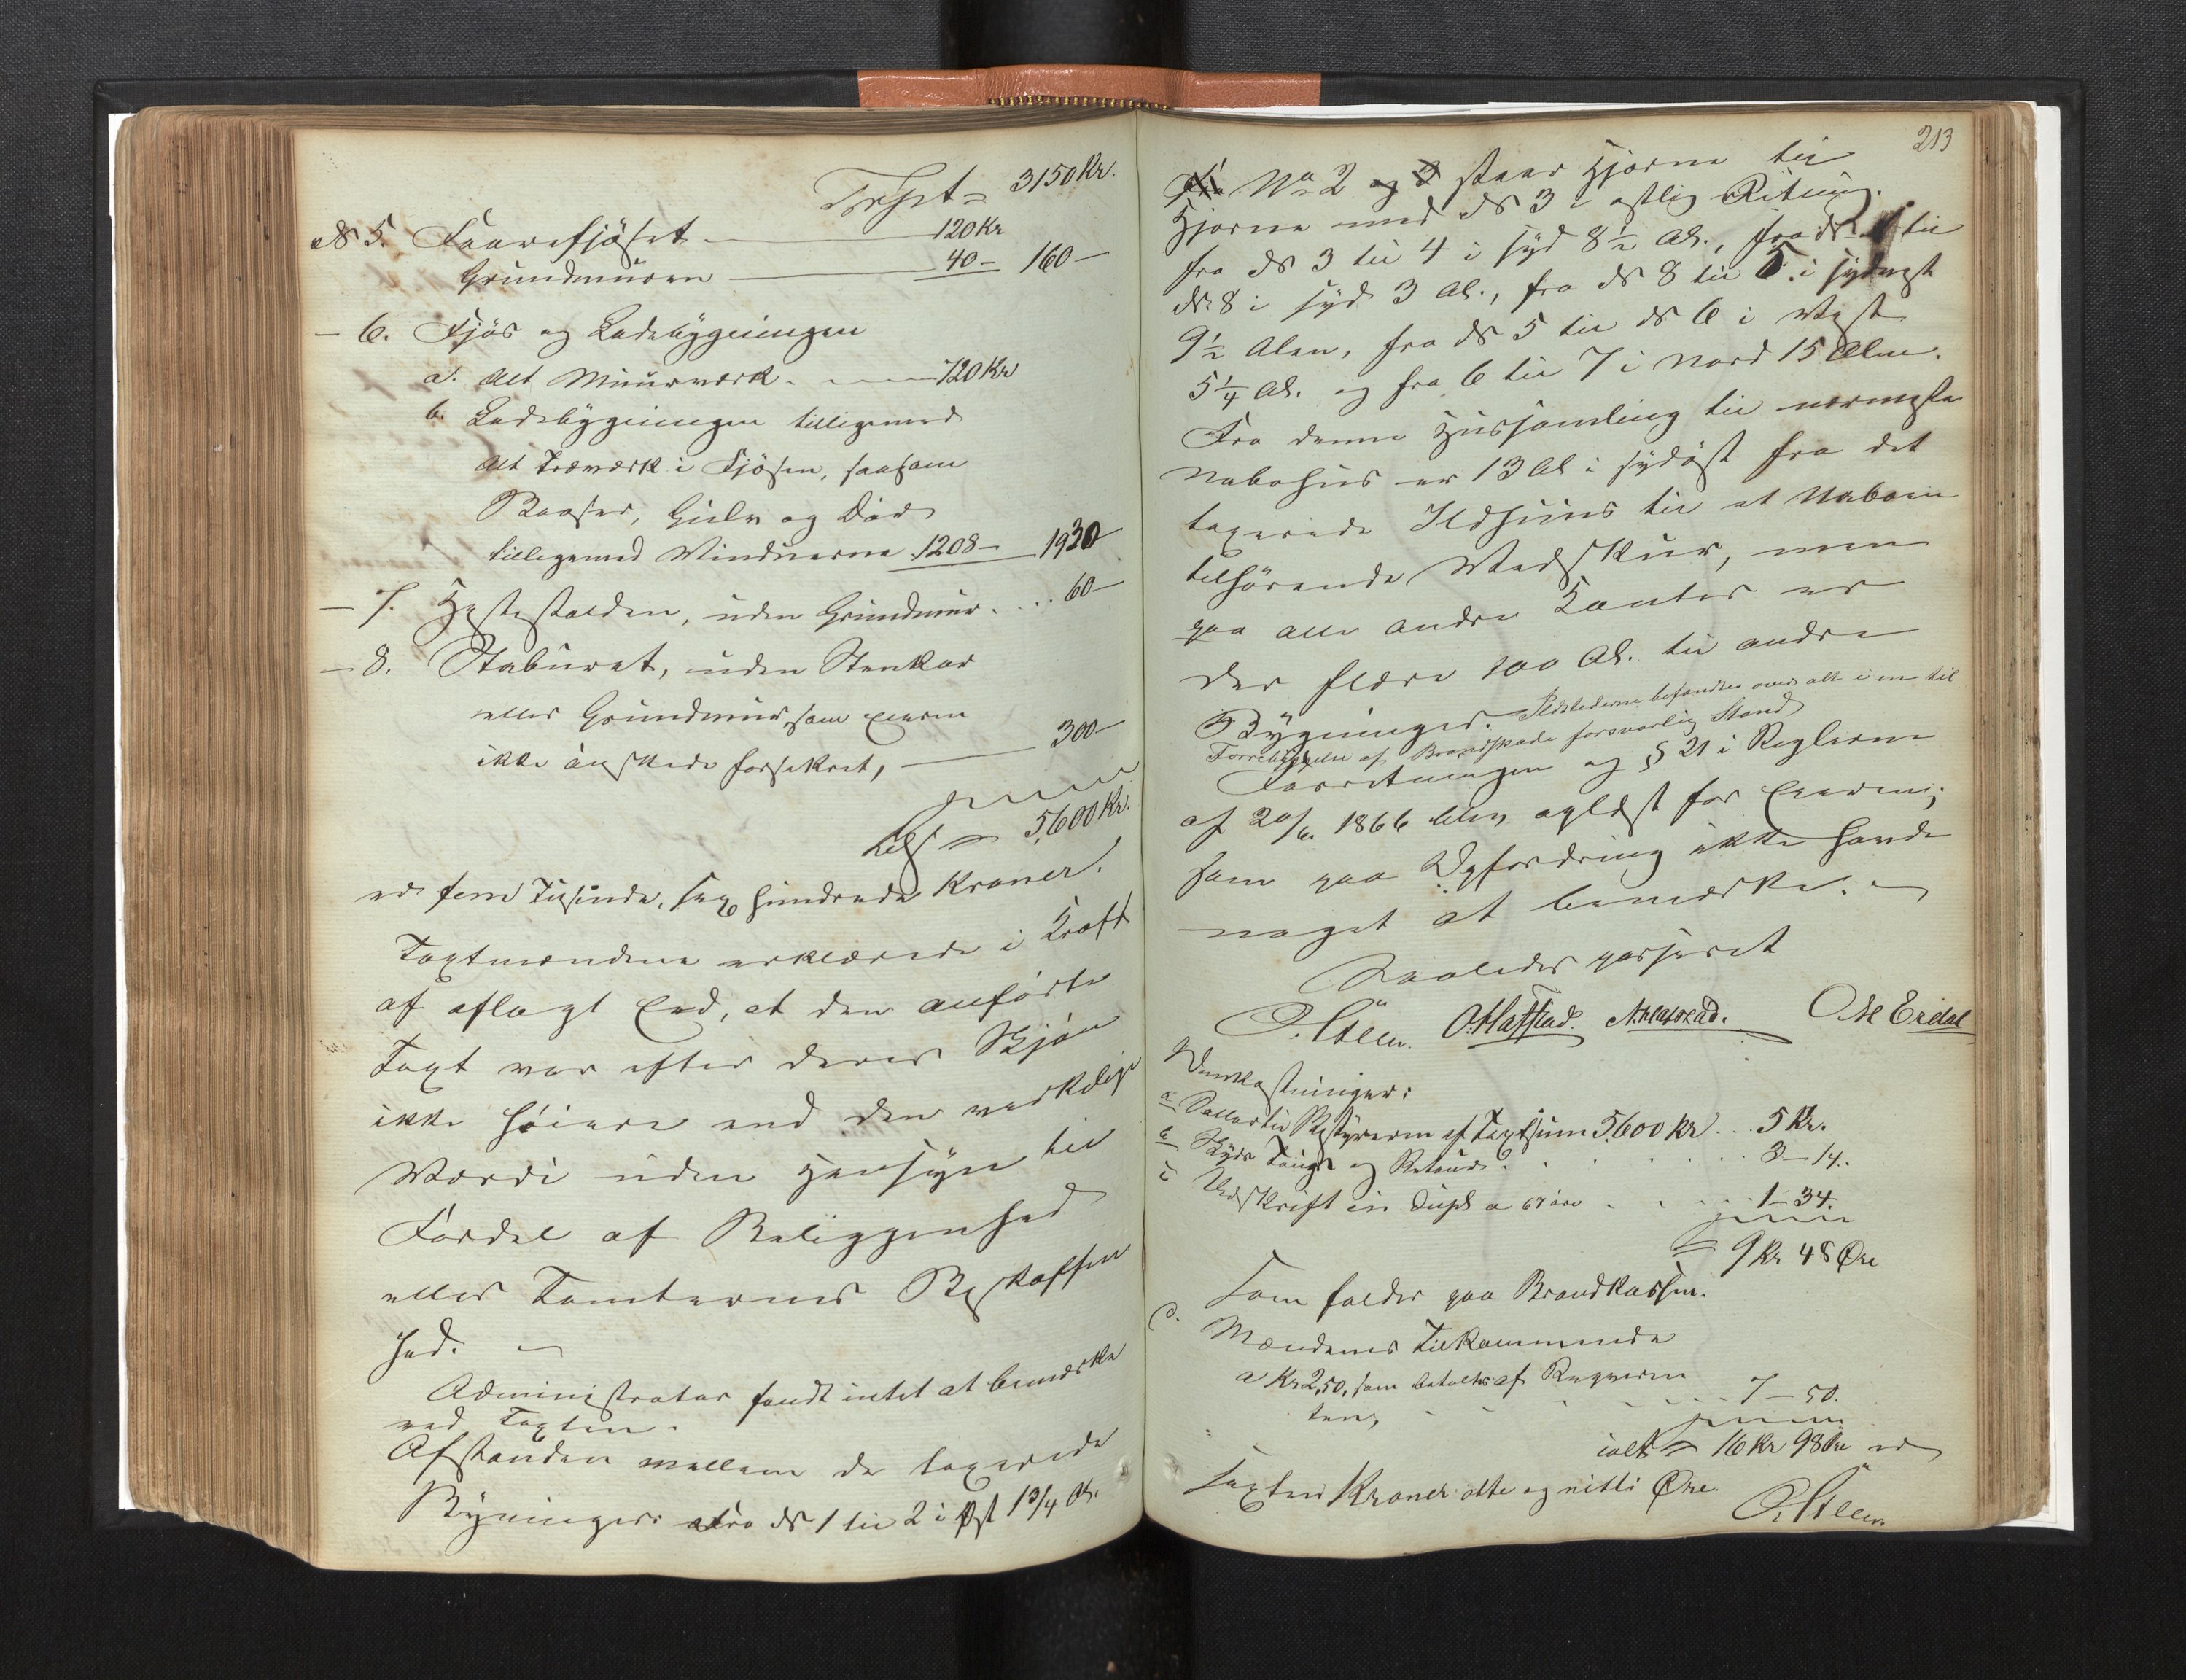 Trspt = 3150 Kr.
№ 5. Faarefjöset 120 Kr
Grundmuren 40 - 160 -
- 6. Fjös og Ladebygningen
a. Alt Muurværk. 720 Kr
b. Ladebygningen tilligemed
Alt Træværk i Fjösen, saasom
Baaser, Gulv og Dör
tilligemed Vinduerne 1208 - 1930
- 7. Hestestalden, uden Grundmur . . . 60 -
- 8. Staburet, uden Stenkar
eller Grundmur, som Eieren
ikke önskede forsikret, 300 -
Tils = 5,600 Kr.
er fem Tusinde, sex hundrede Kroner.
Taxtmændene erklærede i Kraft
af aflagt Eed, at den anförte
Taxt var efter deres Skjön
ikke höiere end den virkelige
Værdi uden Hensyn til
Fordel af Beliggenhed
eller Tomternes Beskaffen
hed.
Administrator fandt intet at bemærke
ved Taxten.
Afstanden mellem de taxerede
Bygninger: Fra № 1 til 2 i Øst 1 3/4 Al.
213
Fra No 2 og 3 staar Hjörne til
Hjörne med № 3 i östlig Retning.
fra № 3 til 4 i syd 8½ Al., fra № 4 til
№ 8 i syd 3 Al., fra № 8 til 5 i sydvest
9½ Alen, fra № 5 til № 6 i Vest
5¼ Al. og fra 6 til 7 i Nord 15 Alen.
Fra denne Hussamling til nærmeste
Nabohus er 13 Al i sydöst fra det
taxerede Ildhuus til et Naboen
tilhörende Vedskur, men
paa alle andre Kanter er
der flere 100 Al. til andre
Bygninger. Ildstederne befandtes over alt i en til
Forrebyggelse af Brandskade forsvarlig Stand
Forretningen og § 21 i Reglerne
af 20/6. 1866 blev oplæst for Eieren;
som paa Opfordring ikke havde
noget at bemærke.
Saaledes passeret
O. Hafstad. N. Hafstad. Ole Eidal
Omkostninger:
a Sallær til Bestyreren af Taxtsum 5.600 Kr . . . 5 Kr.
b Skyds Tour og Retour . . . 3 - 14.
c Udskrift in Dupl a 67 öre . . . 1 - 34.
= 9 Kr 48 Øre
Som falder paa Brandkassen.
d. Mændenes Tilkommende
a Kr 2,50, som betaltes af Reqviren
ten, 7 - 50.
ialt = 16 Kr 98 Øre er
Sexten Kroner otte og nitti Øre.